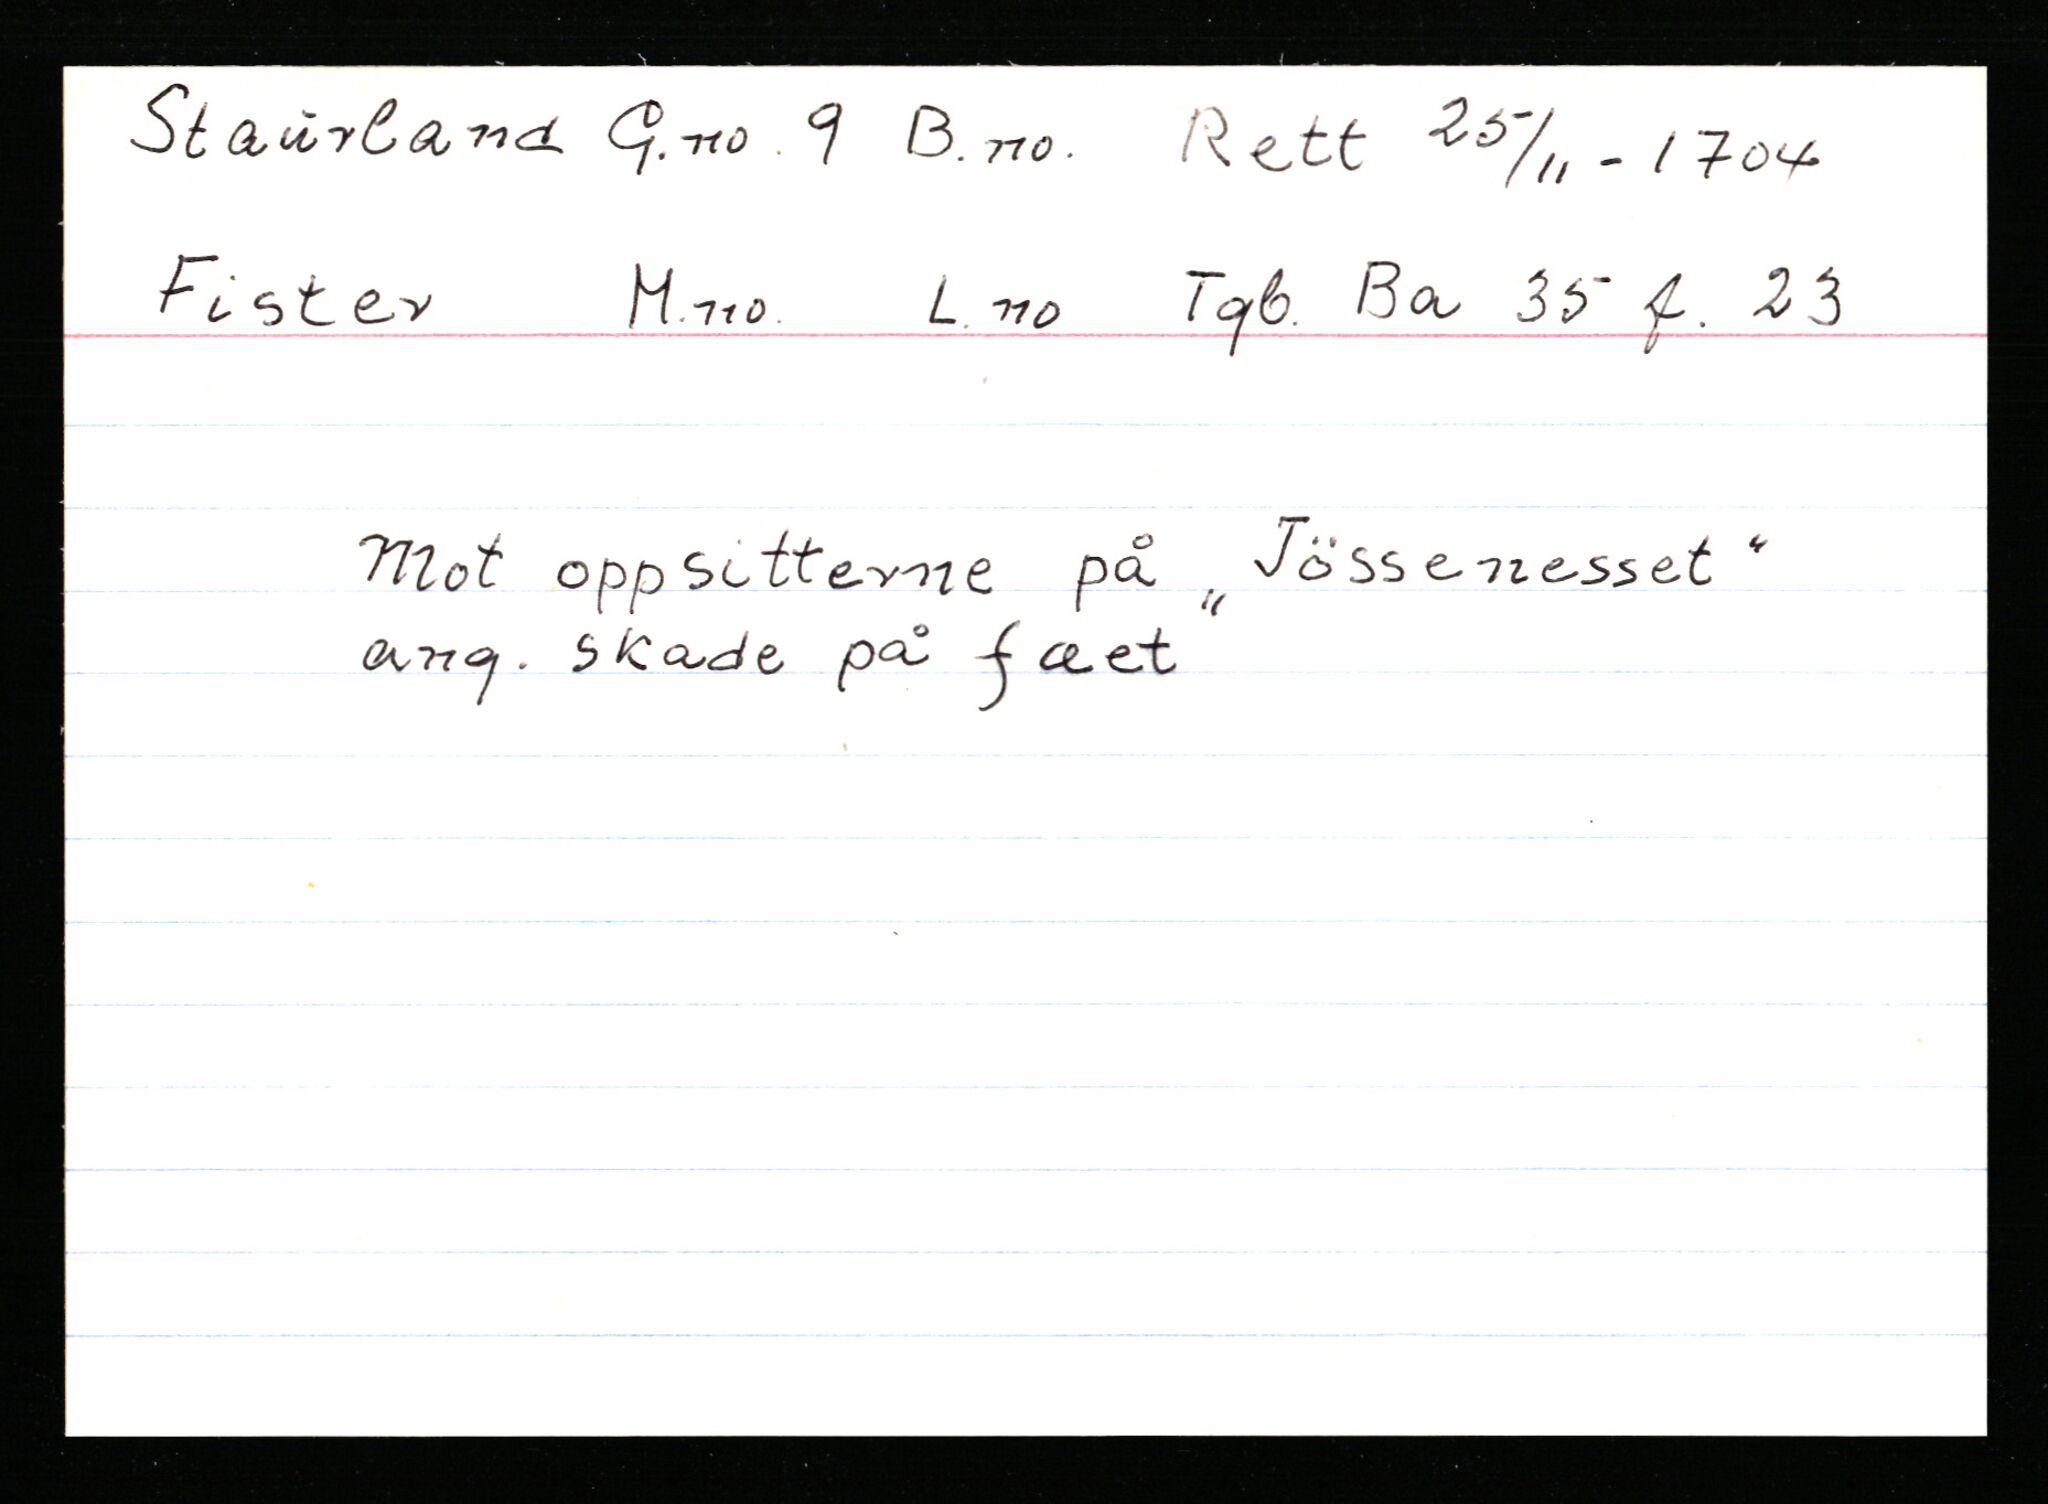 Staurland G.no. 9 B.no. Rett 25/11-1704
Fister M.no. L.no Tgb. Ba 35 f. 23
Mot oppsitterne på „Jössenesset“
ang. skade på fæet